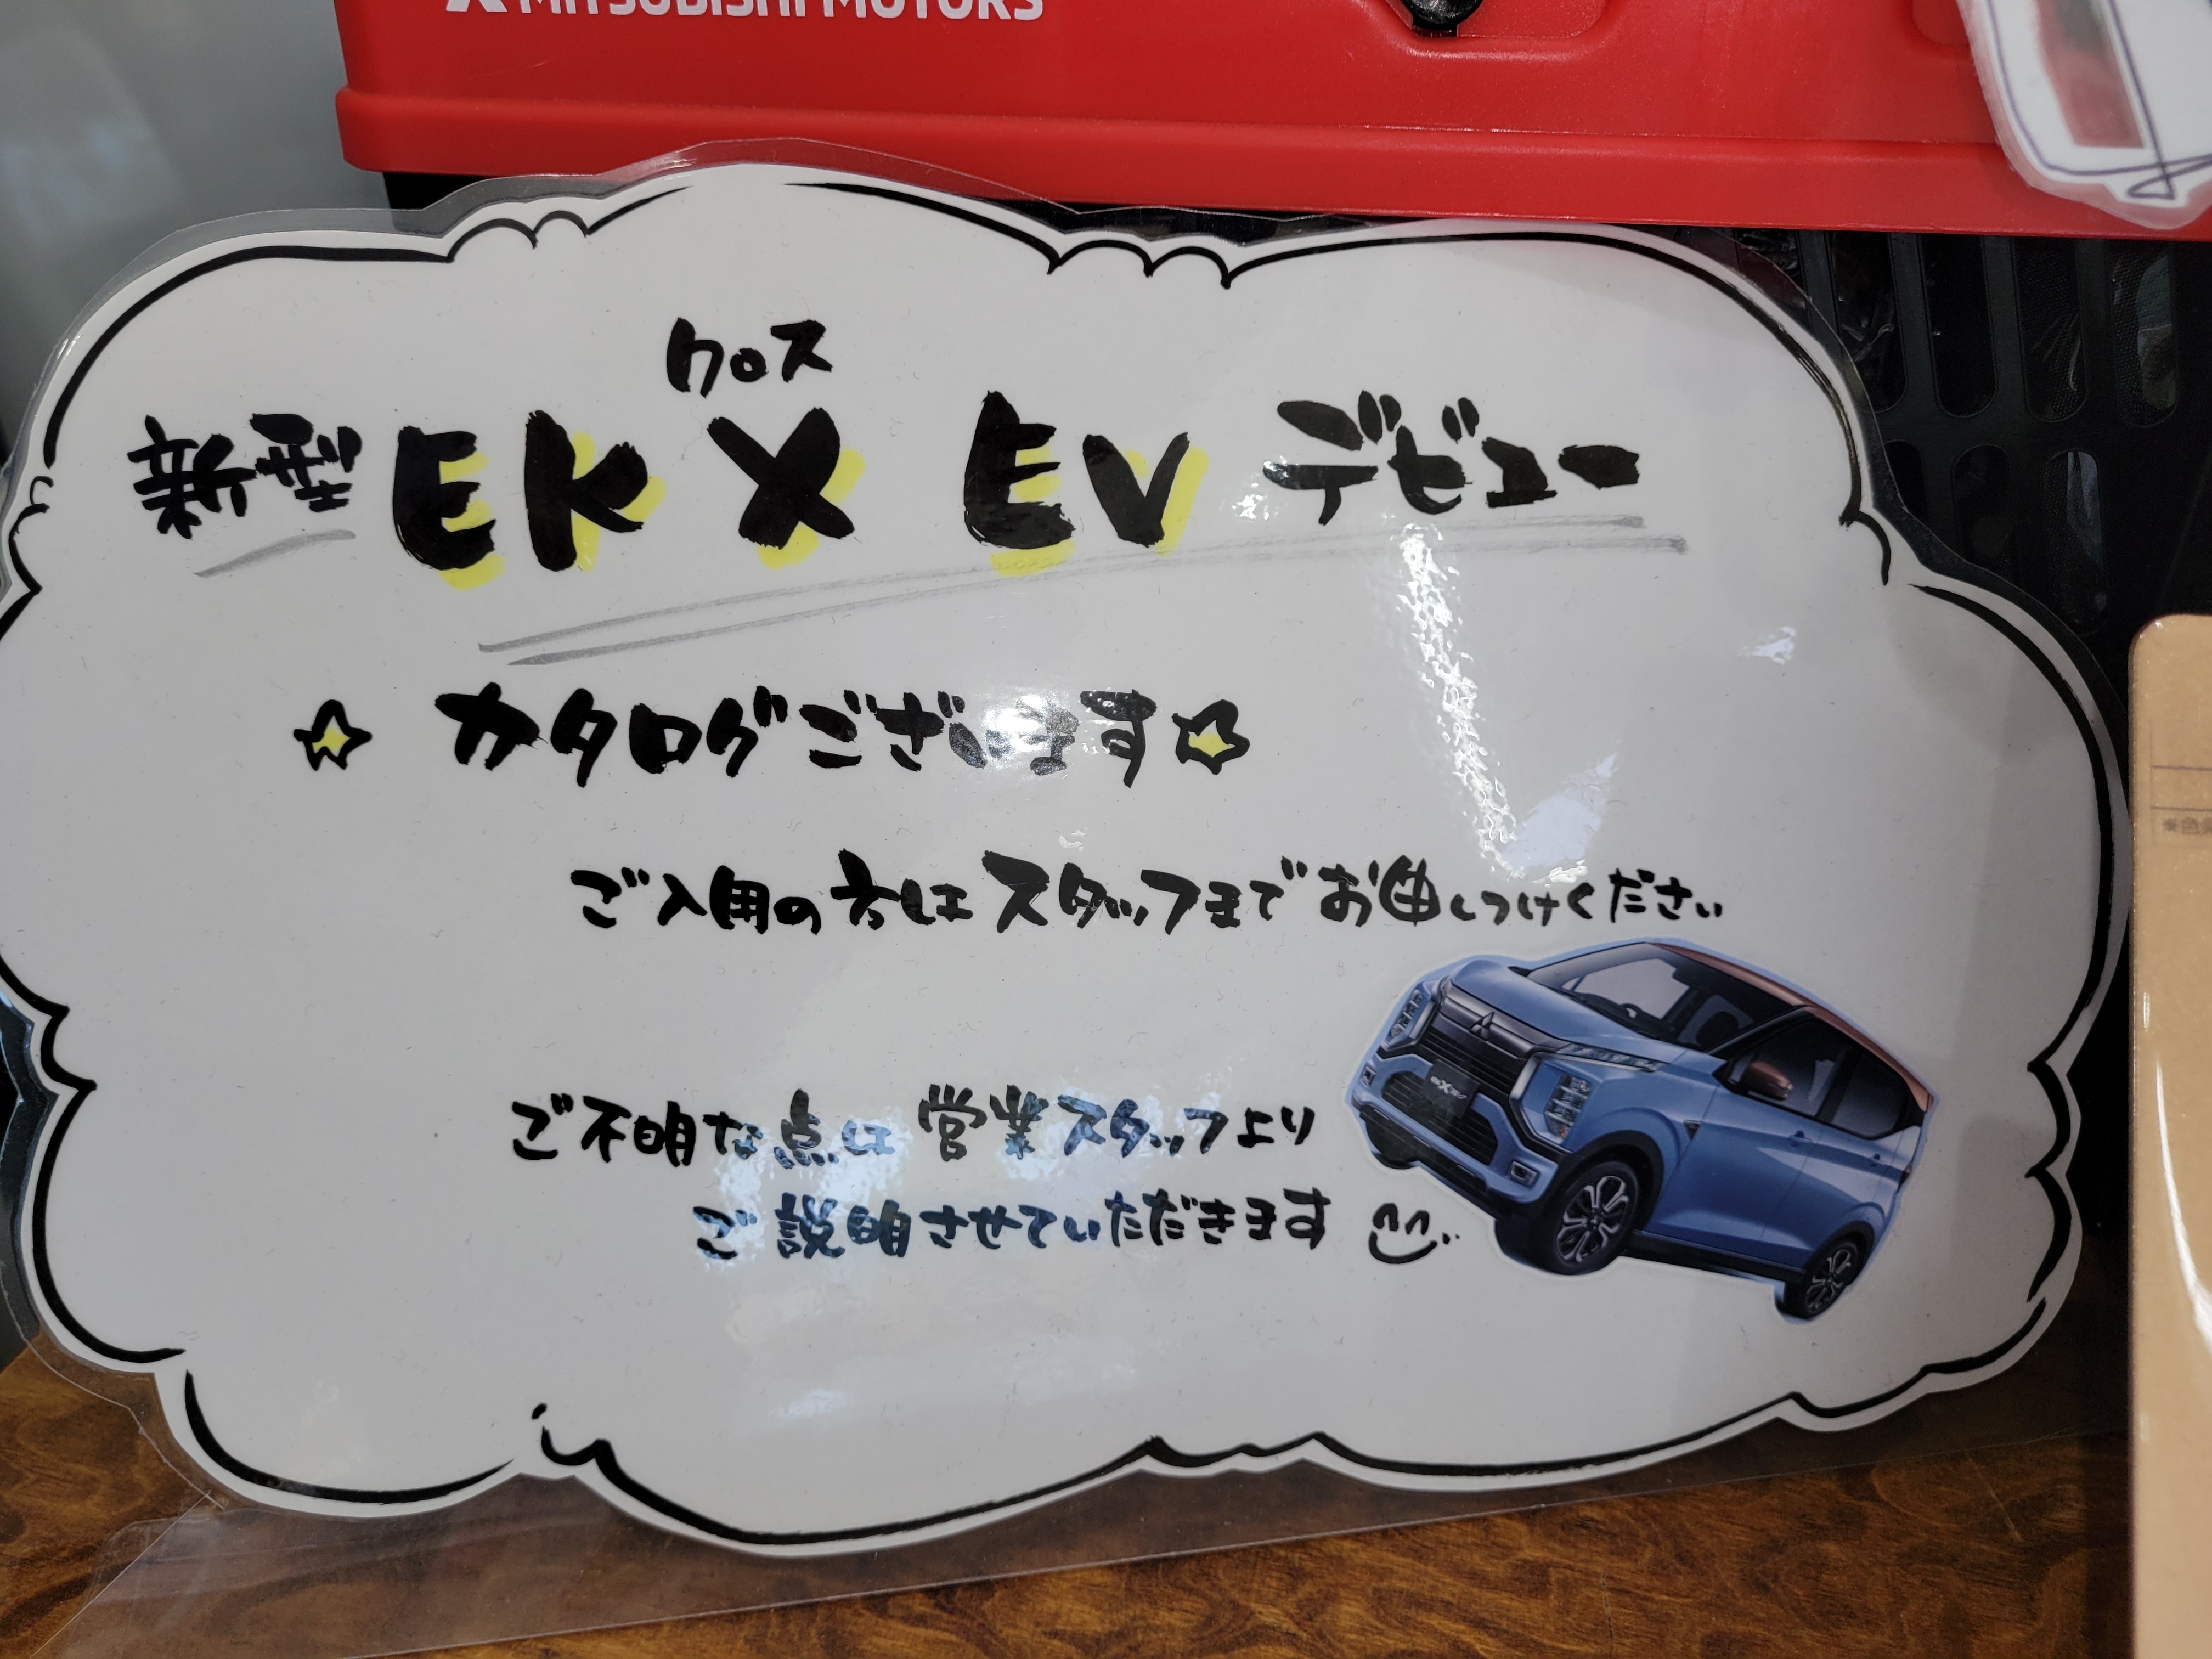 MITSUBISHI MOTORS
クロス
新型 EK X EV デビュー
☆ カタログございます☆
ご入用の方は スタッフまで お申しつけください
ご不明な点は 営業スタッフより
ご説明させていただきます